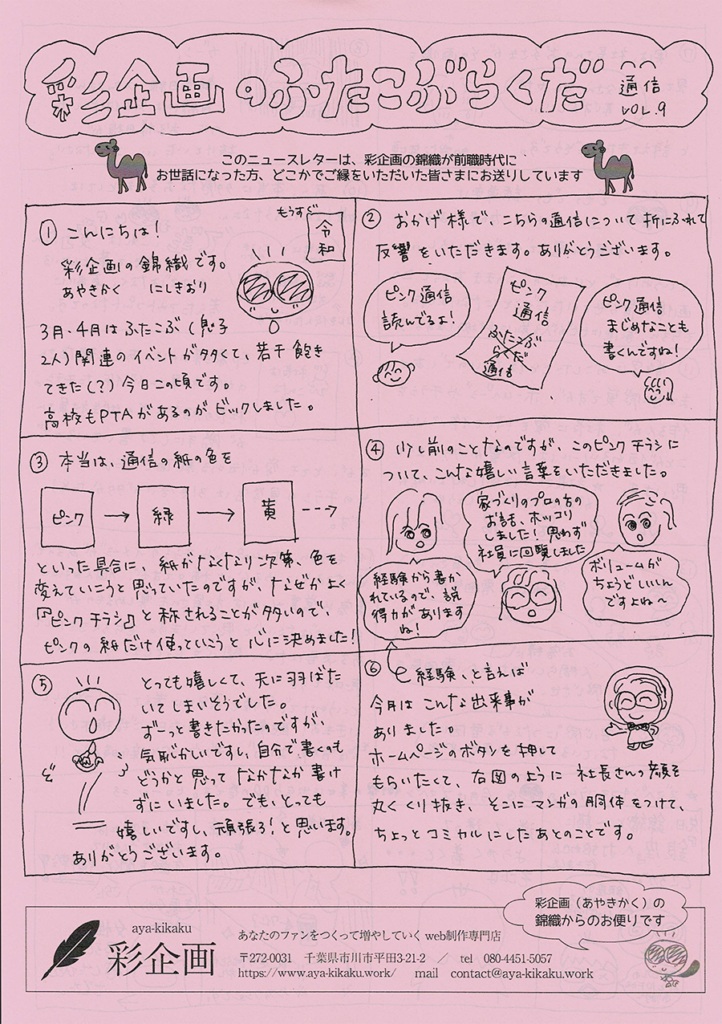 彩企画のふたこぶらくだ
通信
VOL.9
このニュースレターは、彩企画の錦織が前職時代に
お世話になった方、どこかでご縁をいただいた皆さまにお送りしています
① こんにちは!
もうすぐ
令和
彩企画の錦織です。
あやきかく にしきおり
3月・4月はふたこぶ(息子
2人)関連のイベントが多くて、若干飽き
てきた(?)今日この頃です。
高校もPTAがあるのがビックしました。
② おかげ様で、こちらの通信について折にふれて
反響をいただきます。ありがとうございます。
ピンク通信
読んでるよ!
ピンク
通信
ふたこぶ
らくだ
通信
ピンク通信
まじめなことも
書くんですね!
③ 本当は、通信の紙の色を
ピンク → 緑 → 黄 ⇢
といった具合に、紙がなくなり次第、色を
変えていこうと思っていたのですが、なぜかよく
『ピンクチラシ』と称されることが多いので、
ピンクの紙だけ使っていこうと心に決めました!
④ 少し前のことなのですが、このピンクチラシに
ついて、こんな嬉しい言葉をいただきました。
経験から書か
れているので、説
得力があります
ね!
家づくりのプロの方の
お話、ホッコリ
しました!思わず
社員に回覧しました
ボリュームが
ちょうどいいん
ですよね〜
⑤ とっても嬉しくて、天に羽ばた
いてしまいそうでした。
ずーっと書きたかったのですが、
気恥かしいですし、自分で書くのも
どうかと思ってなかなか書け
ずにいました。でも、とっても
嬉しいですし、頑張ろ!と思います。
ありがとうございます。
⑥ 経験、と言えば
今月はこんな出来事が
ありました。
ホームページのボタンを押して
もらいたくて、右図のように社長さんの顔を
丸くくり抜き、そこにマンガの胴体をつけて、
ちょっとコミカルにしたあとのことです。
彩企画(あやきかく)の
錦織からのお便りです
aya-kikaku
彩企画
あなたのファンをつくって増やしていく web制作専門店
〒272-0031 千葉県市川市平田3-21-2 / tel 080-4451-5057
https://www.aya-kikaku.work/ mail contact@aya-kikaku.work